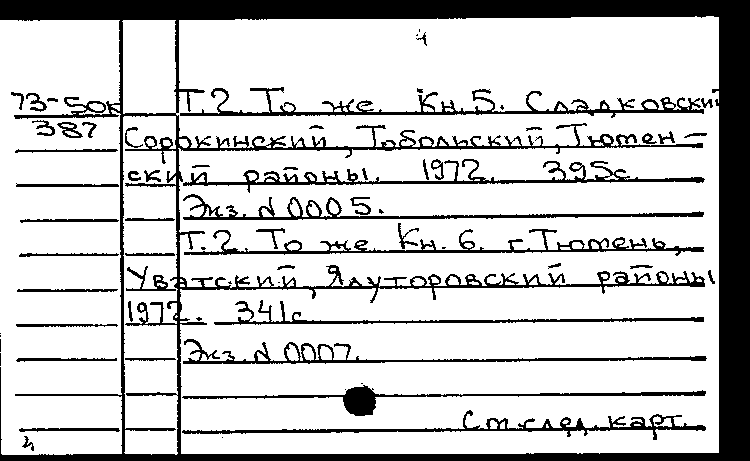 4
73-50к Т.2. То же. Кн.5. Сладковский
387 Сорокинский, Тобольский, Тюмен-
ский районы. 1972. 395с.
Экз. N 0005.
Т.2. То же Кн. 6. г. Тюмень,
Уватский, Ялуторовский районы
1972. 341с
Экз. N 0007.
См. след. карт.